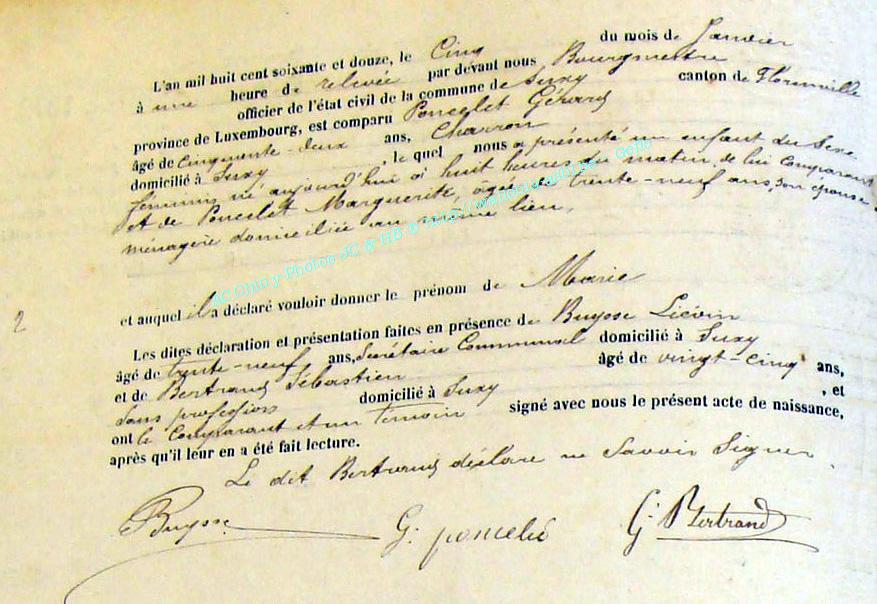 L'an mil huit cent soixante et douze, le Cinq du mois de Janvier
à une heure de relevée par devant nous Bourgmestre
officier de l'état civil de la commune de Suxy canton de Florenville
province de Luxembourg, est comparu Poncelet Gérard
âgé de Cinquante-deux ans, Charron
domicilié à Suxy , le quel nous a présenté un enfant du Sexe
féminin né aujourd'hui à huit heures du matin, de lui Comparant
et de Poncelet Marguerite, âgée de trente-neuf ans, Son épouse
ménagère domiciliée au même lieu,
et auquel il a déclaré vouloir donner le prénom de Marie
2
Les dites déclaration et présentation faites en présence de Buysse Liévin
âgé de trente-neuf ans, Secrétaire Communal domicilié à Suxy
et de Bertrand Sébastien âgé de vingt-cinq ans,
Sans profession domicilié à Suxy , et
ont le Comparant et un témoin signé avec nous le présent acte de naissance,
après qu'il leur en a été fait lecture.
Le dit Bertrand déclare ne Savoir Signer.
Buysse G: poncelé G: Bertrand
AC Chiny - Photos JC & HB ©